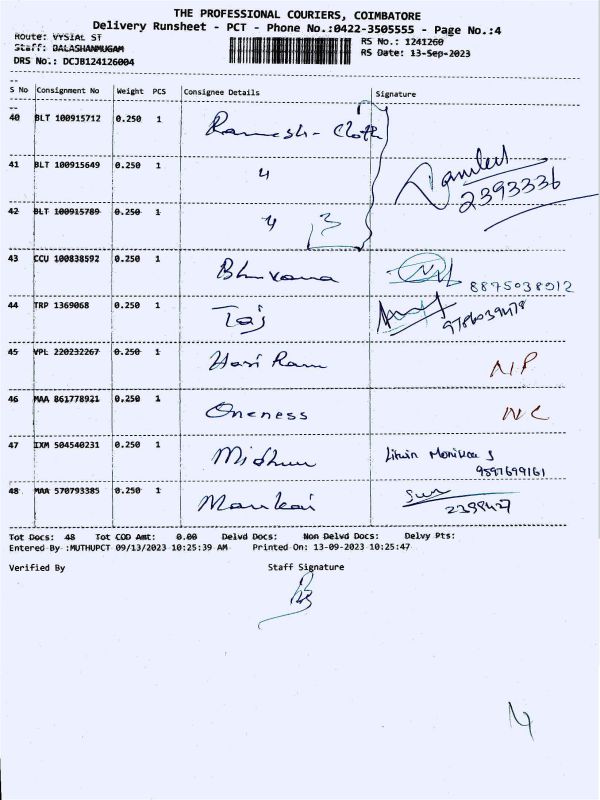 THE PROFESSIONAL COURIERS, COIMBATORE
Delivery Runsheet - PCT - Phone No.:0422-3505555 - Page No.:4
Route: VYSIAL ST
RS No.: 1241260
Staff: BALASHANMUGAM
RS Date: 13-Sep-2023
DRS No.: DCJB124126004
S No Consignment No Weight PCS Consignee Details Signature
40 BLT 100915712 0.250 1 Ramesh - Cloth
41 BLT 100915649 0.250 1 "
2393336
42 BLT 100915789 0.250 1 " 3
43 CCU 100838592 0.250 1 Bhuvana 8875038012
44 TRP 1369068 0.250 1 Taj
45 VPL 220232267 0.250 1 Hari Ram N/P
46 MAA 861778921 0.250 1 Oneness N/C
47 IXM 504540231 0.250 1 Midhun
48 MAA 570793385 0.250 1
Tot Docs: 48 Tot COD Amt: 0.00 Delvd Docs: Non Delvd Docs: Delvy Pts:
Entered By :MUTHUPCT 09/13/2023 10:25:39 AM Printed On: 13-09-2023 10:25:47
Verified By Staff Signature